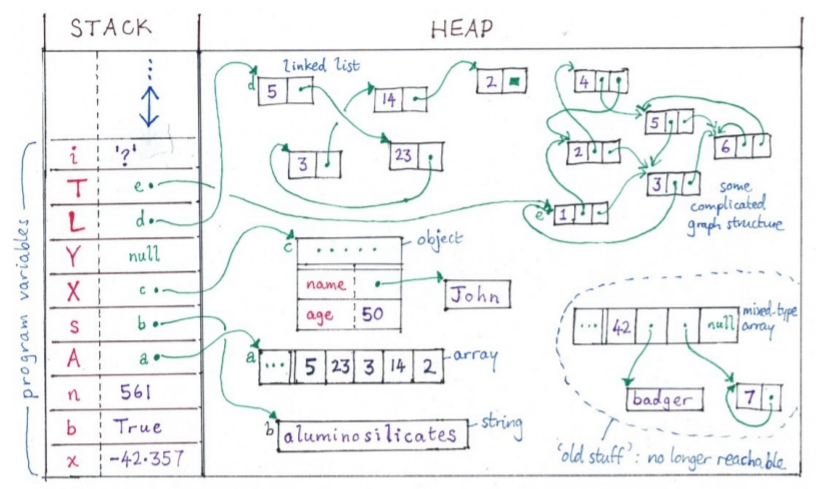 STACK
HEAP
program variables
i '?'
T e
L d
Y null
X c
s b
A a
n 561
b True
x -42.357
linked list
d 5
14
2
3
23
4
5
6
2
3
e 1
some
complicated
graph structure
c
.....
object
name
age 50
John
a ... 5 23 3 14 2
array
b aluminosilicates
string
... 42 null
mixed-type
array
badger
7
'old stuff': no longer reachable